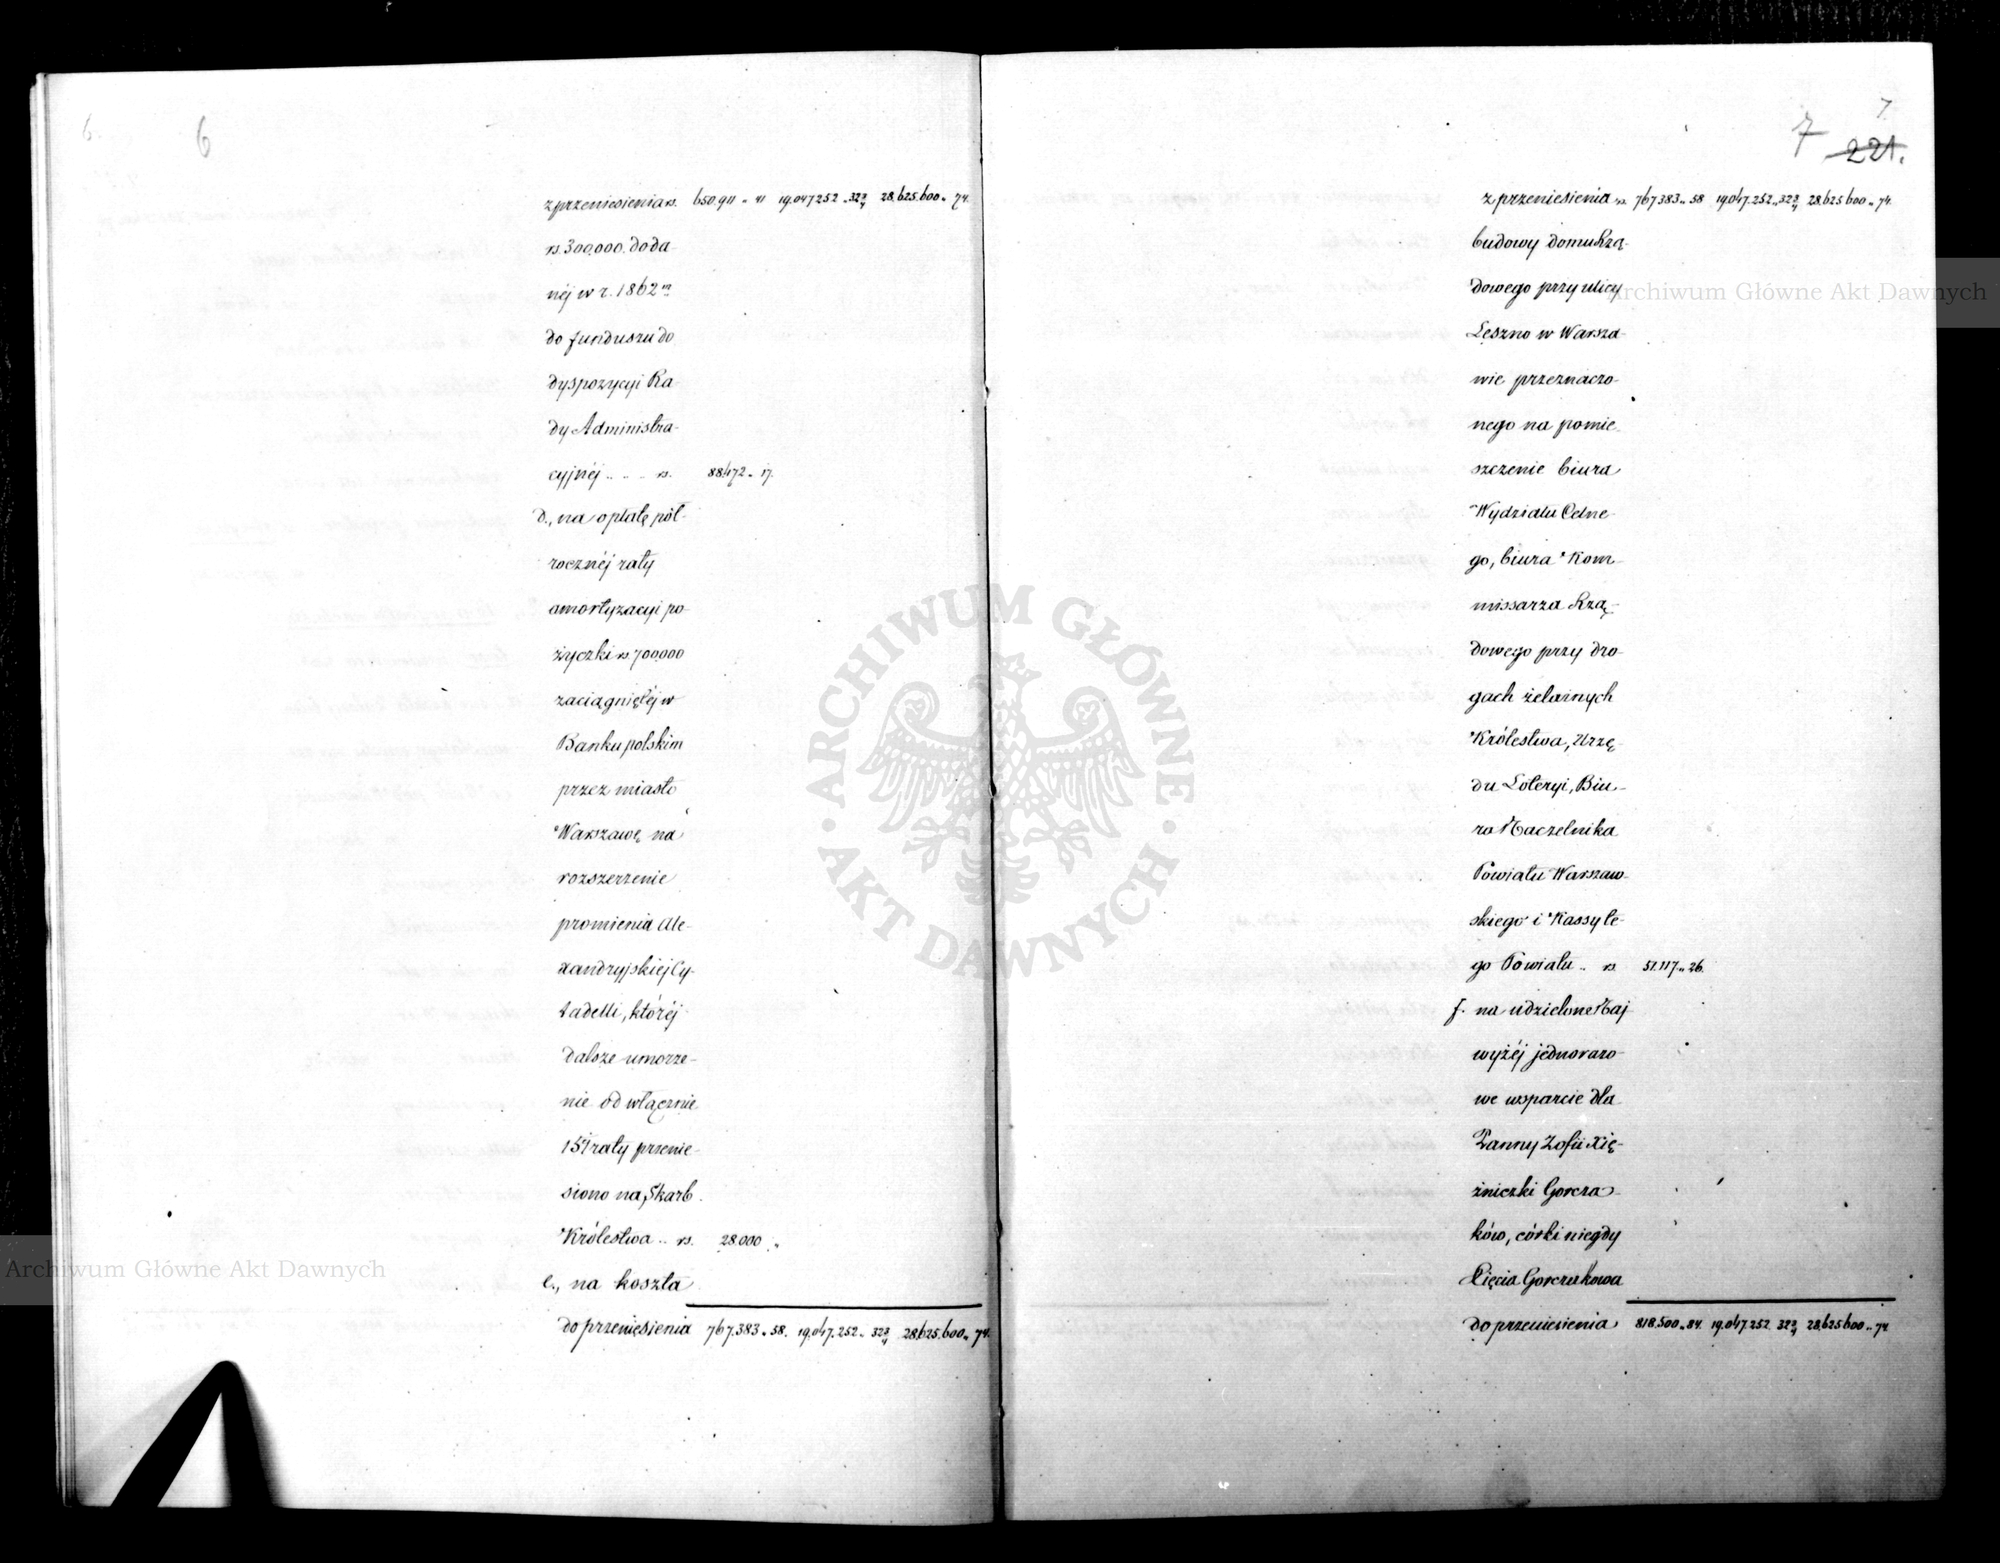 6.
6
z przeniesienia rs. 650.911 „ 41 19.047.252 „ 32 3/4 28.625.600 „ 74.
rs. 300.000. doda-
néj w r. 1862 m
do funduszu do
dyspozycyi Ra-
dy Administra-
cyjnéj .. .. .. rs. 88.472 „ 17.
d., na opłatę pół-
rocznéj raty
amortyzacyi po-
życzki rs. 700.000
zaciągniętéj w
Banku polskim
przez miasto
Warszawę na
rozszerzenie
promienia Ale-
xandryjskiej Cy-
tadelli, któréj
dalsze umorze-
nie od włącznie
15 raty przenie-
siono na Skarb
Królestwa .. rs. 28.000 „
e., na koszta
do przeniesienia 767.383 „ 58. 19.047.252 „ 32 3/4 28.625.600 „ 74.
7
7 221.
z przeniesienia rs. 767.383 „ 58 19.047.252 „ 32 3/4 28.625.600 „ 74.
budowy domu Rzą-
dowego przy ulicy
Leszno w Warsza-
wie przeznaczo-
nego na pomie-
szczenie biura
Wydziału Celne-
go, biura Kom-
missarza Rzą-
dowego przy dro-
gach żelaznych
Królestwa, Urzę-
du Loteryi, Biu-
ro Naczelnika
Powiatu Warszaw-
skiego i Kassy te-
go Powiatu .. rs. 51.117 „ 26.
f. na udzielone Naj
wyżéj jednorazo-
we wsparcie dla
Panny Zofii Xię-
żniczki Gorcza-
ków, córki niegdy
Xięcia Gorczakowa
do przeniesienia 818.500 „ 84. 19.047.252. 32 3/4 28.625.600 „ 74
Archiwum Główne Akt Dawnych
Archiwum Główne Akt Dawnych
ARCHIWUM GŁÓWNE · AKT DAWNYCH ·